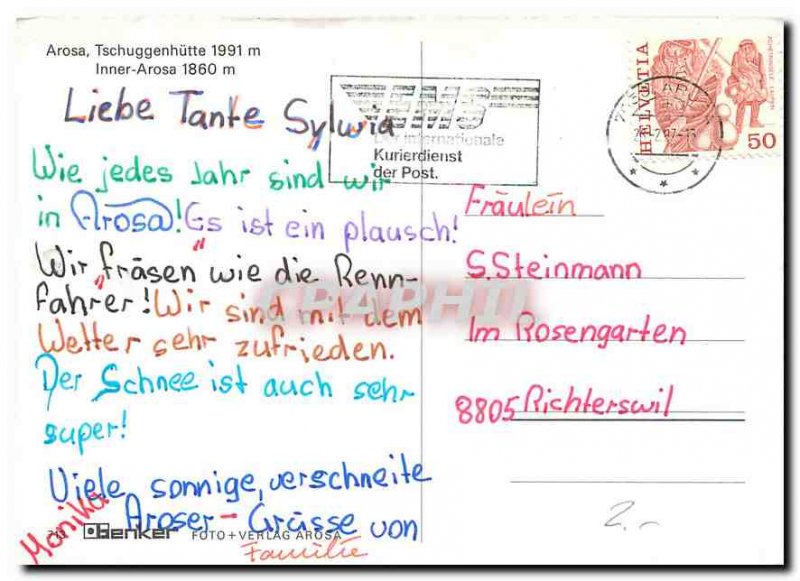 Arosa, Tschuggenhütte 1991 m
Inner-Arosa 1860 m
Liebe Tante Sylwia
Wie jedes Jahr sind wir
in Arosa! Es ist ein plausch!
Wir "fräsen" wie die Renn-
fahrer! Wir sind mit dem
Wetter sehr zufrieden.
Der Schnee ist auch sehr
super!
Viele sonnige, verschneite
Aroser-Grüsse von
Monika
Familie
713 Denker FOTO+VERLAG AROSA
EMS
Der internationale
Kurierdienst
der Post.
HELVETIA
50
Fräulein
S. Steinmann
Im Rosengarten
8805 Richterswil
2.-